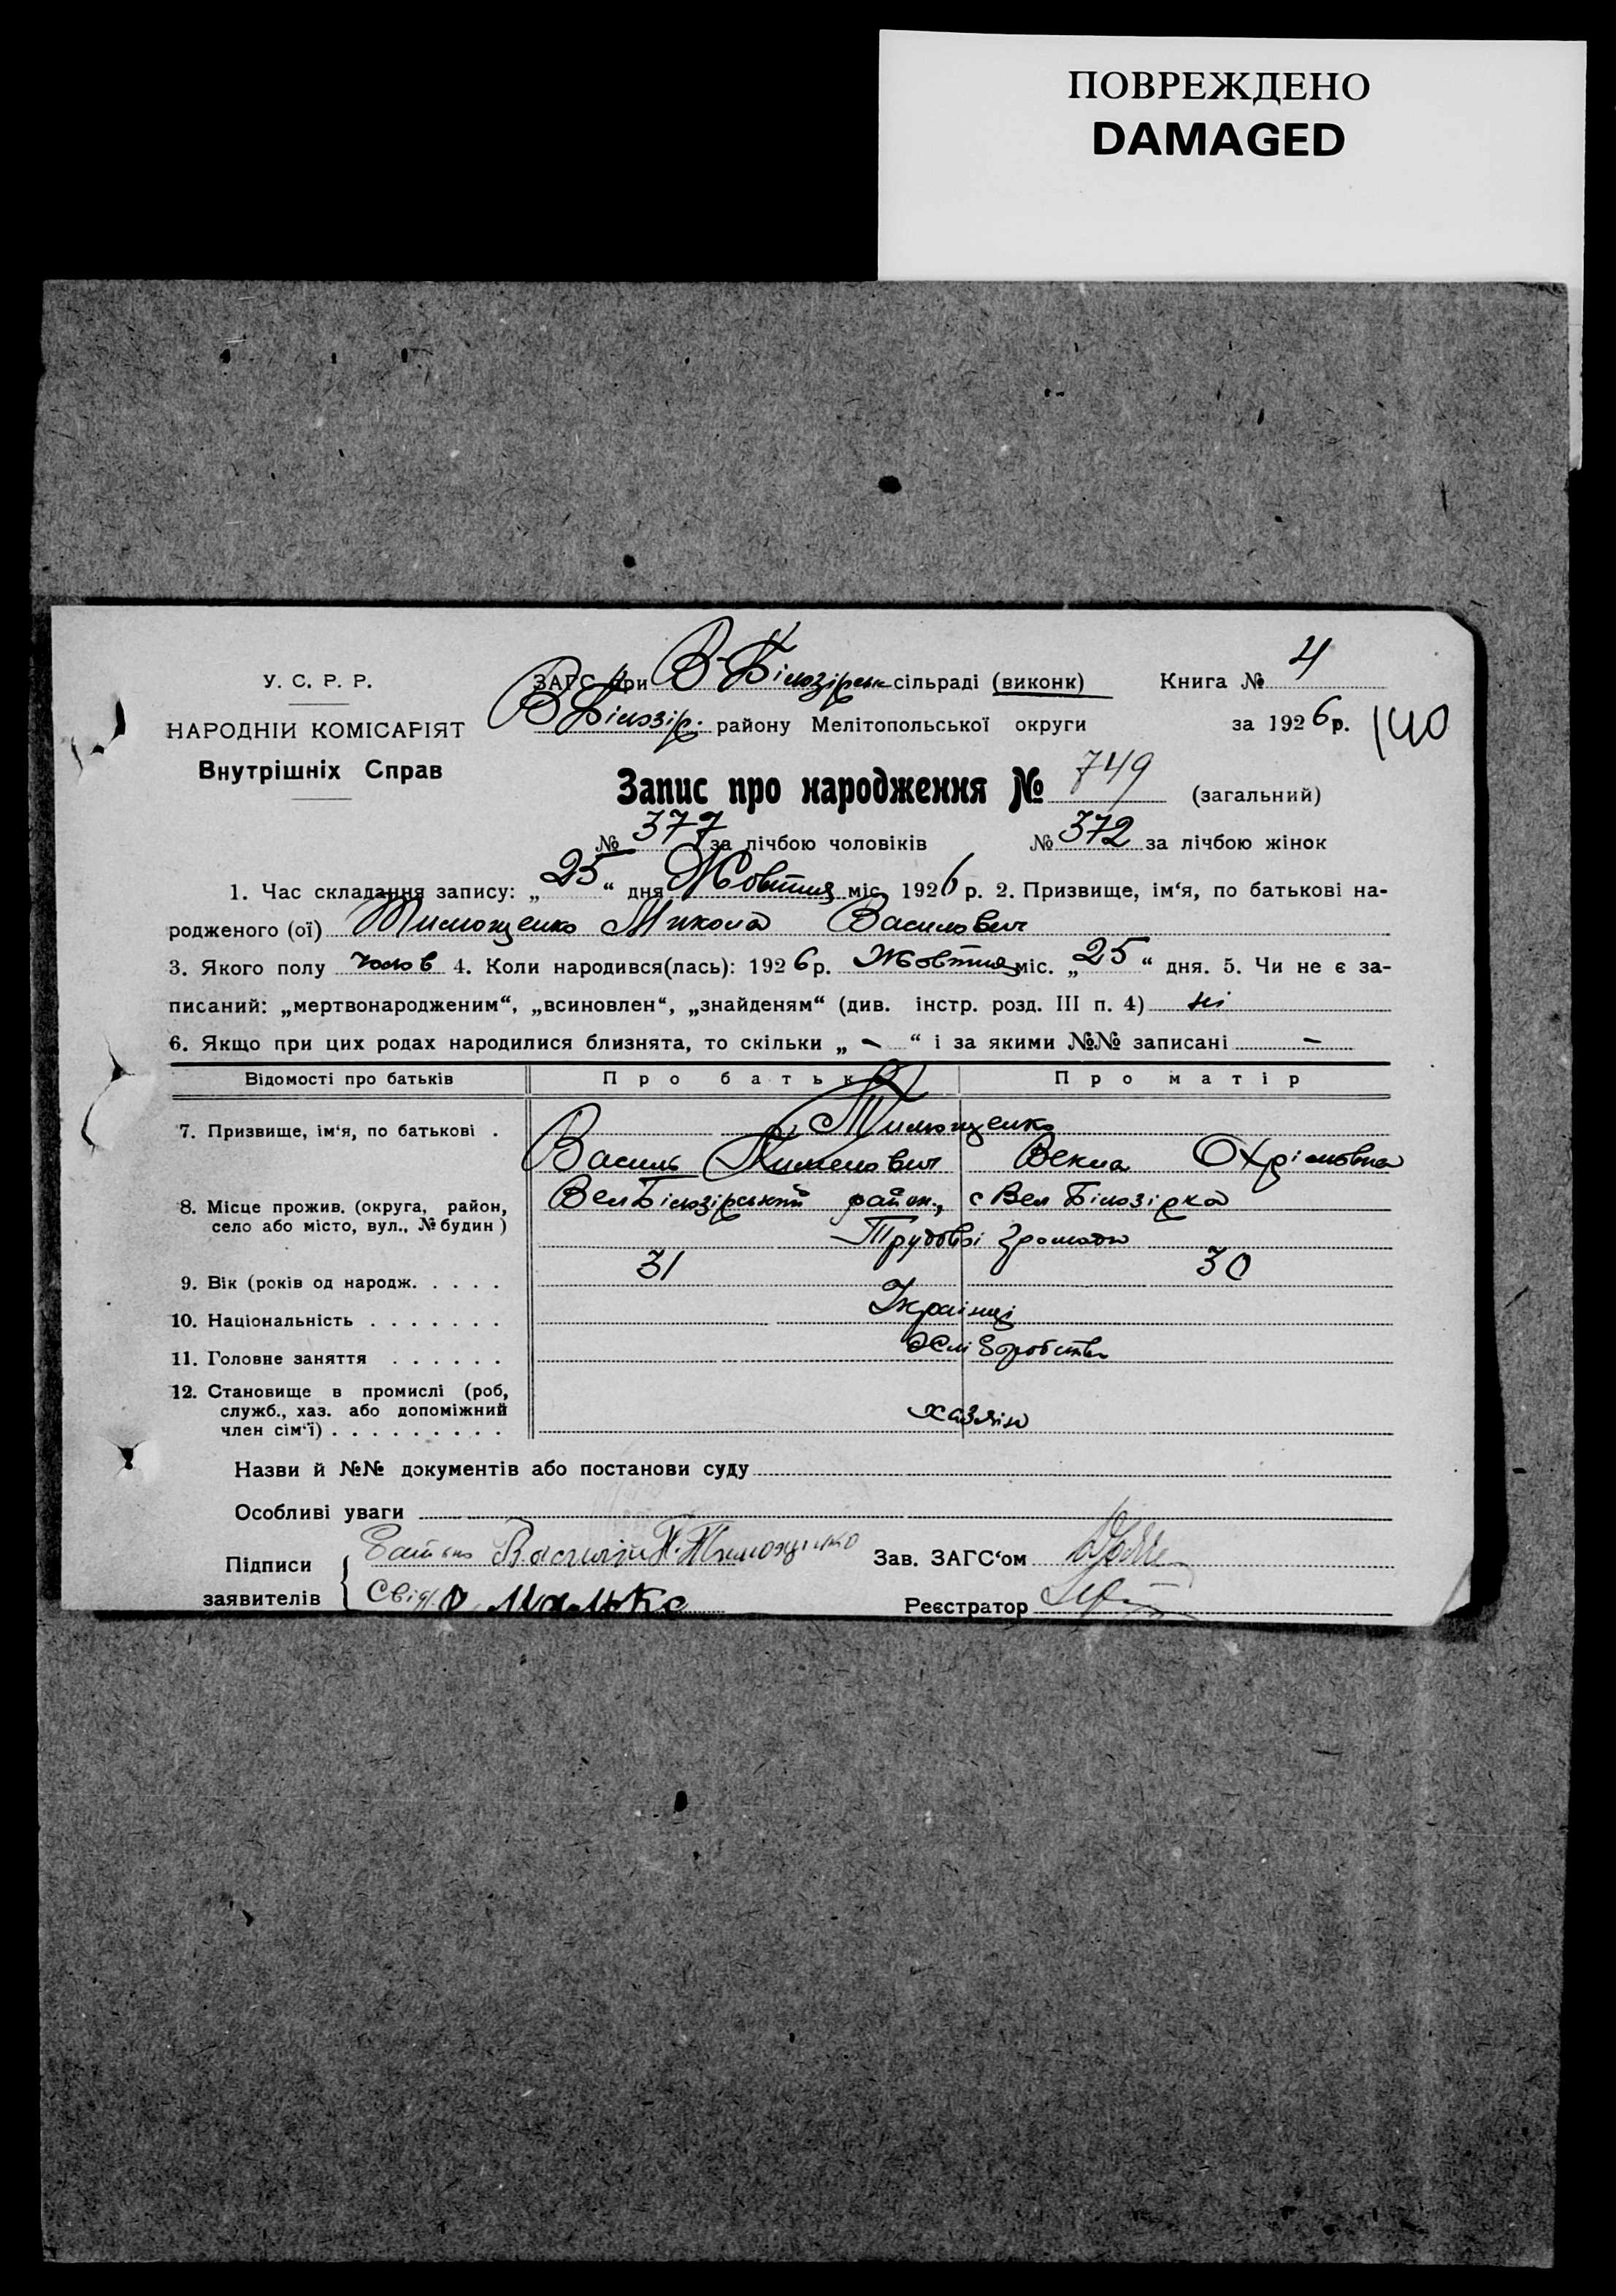 ПОВРЕЖДЕНО
DAMAGED
У. С. Р. Р.
НАРОДНІЙ КОМІСАРІЯТ
Внутрішніх Справ
ЗАГС при В-Білозірськ сільраді (виконк)
В Білозір. району Мелітопольської округи
Книга № 4
за 1926 р.
140
Запис про народження № 749 (загальний)
№ 377 за лічбою чоловіків № 372 за лічбою жінок
1. Час складання запису: „25“ дня Жовтня міс. 1926 р. 2. Призвище, ім‘я, по батькові на-
родженого (ої) Тимощенко Микола Василович
3. Якого полу чолов 4. Коли народився(лась): 1926 р. Жовтня міс. „25“ дня. 5. Чи не є за-
писаний: „мертвонародженим“, „всиновлен“, „знайденям“ (див. інстр. розд. III п. 4) ні
6. Якщо при цих родах народилися близнята, то скільки „ – “ і за якими №№ записані –
Відомості про батьків Про батька Про матір
7. Призвище, ім‘я, по батькові . Тимощенко
Василь Пименович Векла Охрімовна
8. Місце прожив. (округа, район, село або місто, вул., № будин) ВелБілозірський район., с Вел Білозірка
Трудової Громади
9. Вік (років од народж. . . . . 31 30
10. Національність . . . . . . . Українці
11. Головне заняття . . . . . . Хліборобство
12. Становище в промислі (роб,
служб., хаз. або допоміжний
член сім‘ї) . . . . . . . . . хазяін
Назви й №№ документів або постанови суду
Особливі уваги
Підписи заявителів
Батько Василій П. Тимощенко
Свід.
Зав. ЗАГС‘ом
Реєстратор